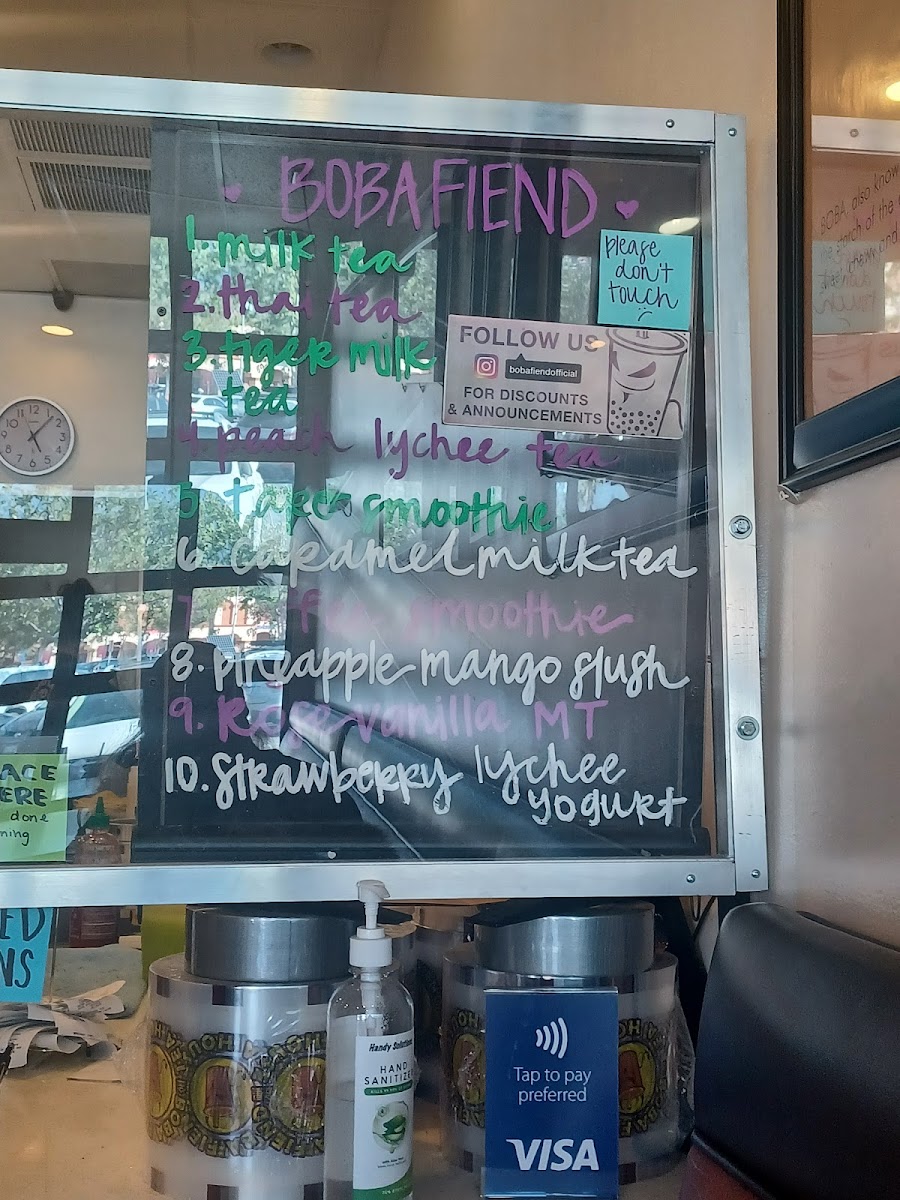 BOBA FIEND
1. milk tea
2. thai tea
3. tiger milk
tea
4. peach lychee tea
5. taro smoothie
6. caramel milk tea
7. smoothie
8. pineapple mango slush
9. Rose vanilla MT
10. strawberry lychee
yogurt
please
don't
touch
FOLLOW US
bobafiendofficial
FOR DISCOUNTS
& ANNOUNCEMENTS
BOBA, also know
done
Handy Solutions
HAND
SANITIZER
Tap to pay
preferred
VISA